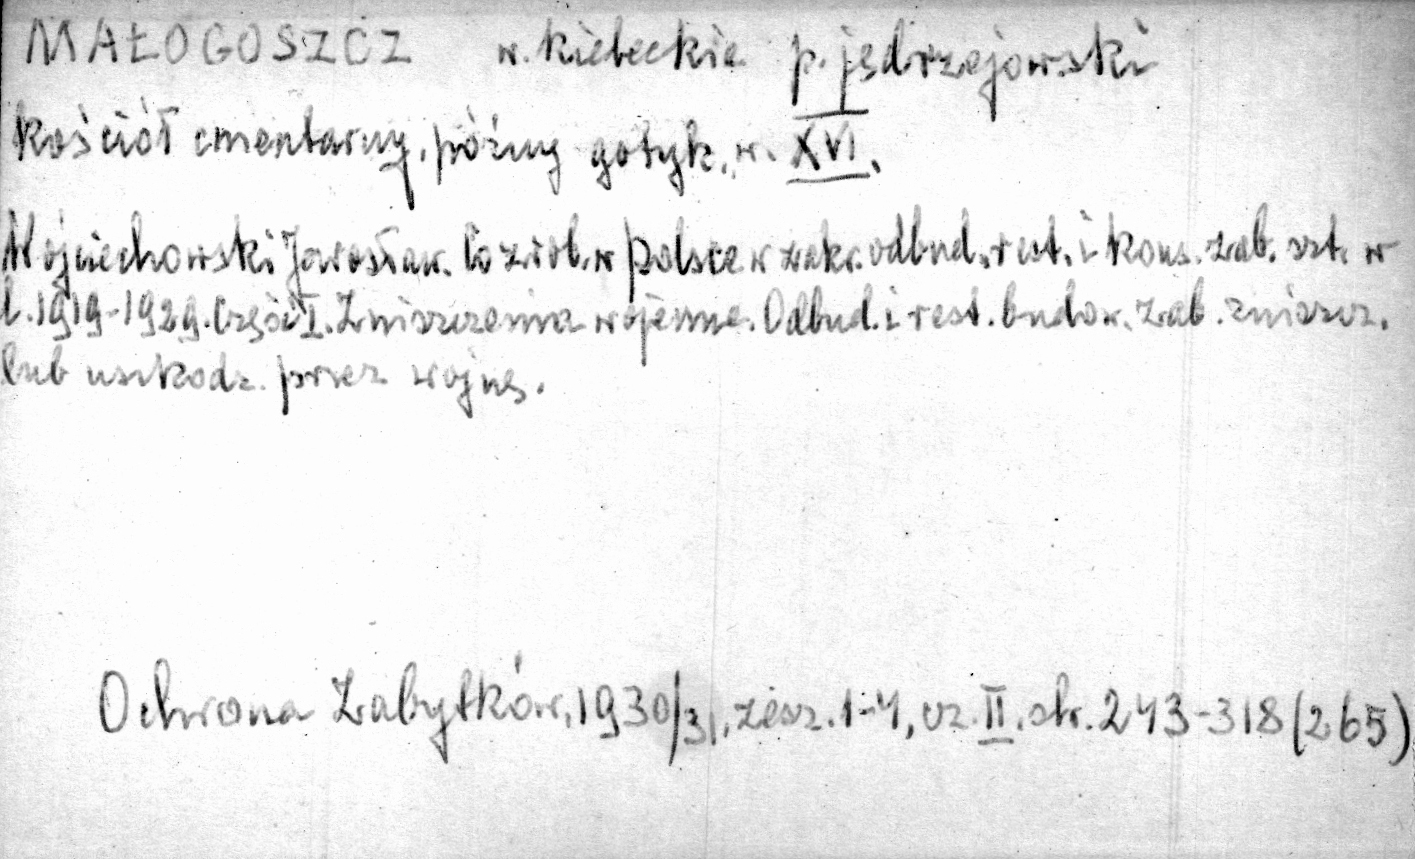 MAŁOGOSZCZ w. kieleckie p. jędrzejowski
Kościół cmentarny, późny gotyk, w. XVI.
Wojciechowski Jarosław. Co zrob. w Polsce w zakr. odbud., rest. i kons. zab. szt. w
l. 1919-1929. Część I. Zniszczenia wojenne. Odbud. i rest. budow. zab. zniszcz.
lub uszkodz. przez wojnę.
Ochrona Zabytków, 1930/31, zesz. 1-4, cz. II. str. 243-318 (265)